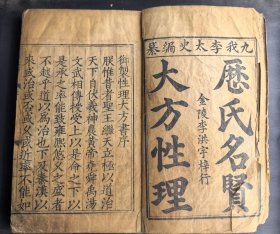 九我李太史纂
歷氏名賢
金陵李洪宇梓行
大方性理
御製性理大方書序
朕惟昔者聖王繼天立極以道治
天下自伏羲神農黃帝堯舜禹湯
文武相傳授受上以是命之下以
是承之率能致雍熙悠久之盛者
不越乎道以為治也下及秦漢以
來或治或否或久或近率不能如